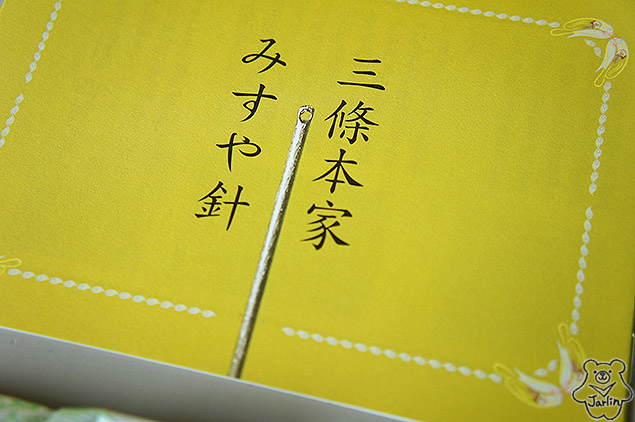 三條本家
みすや針
Jarlin